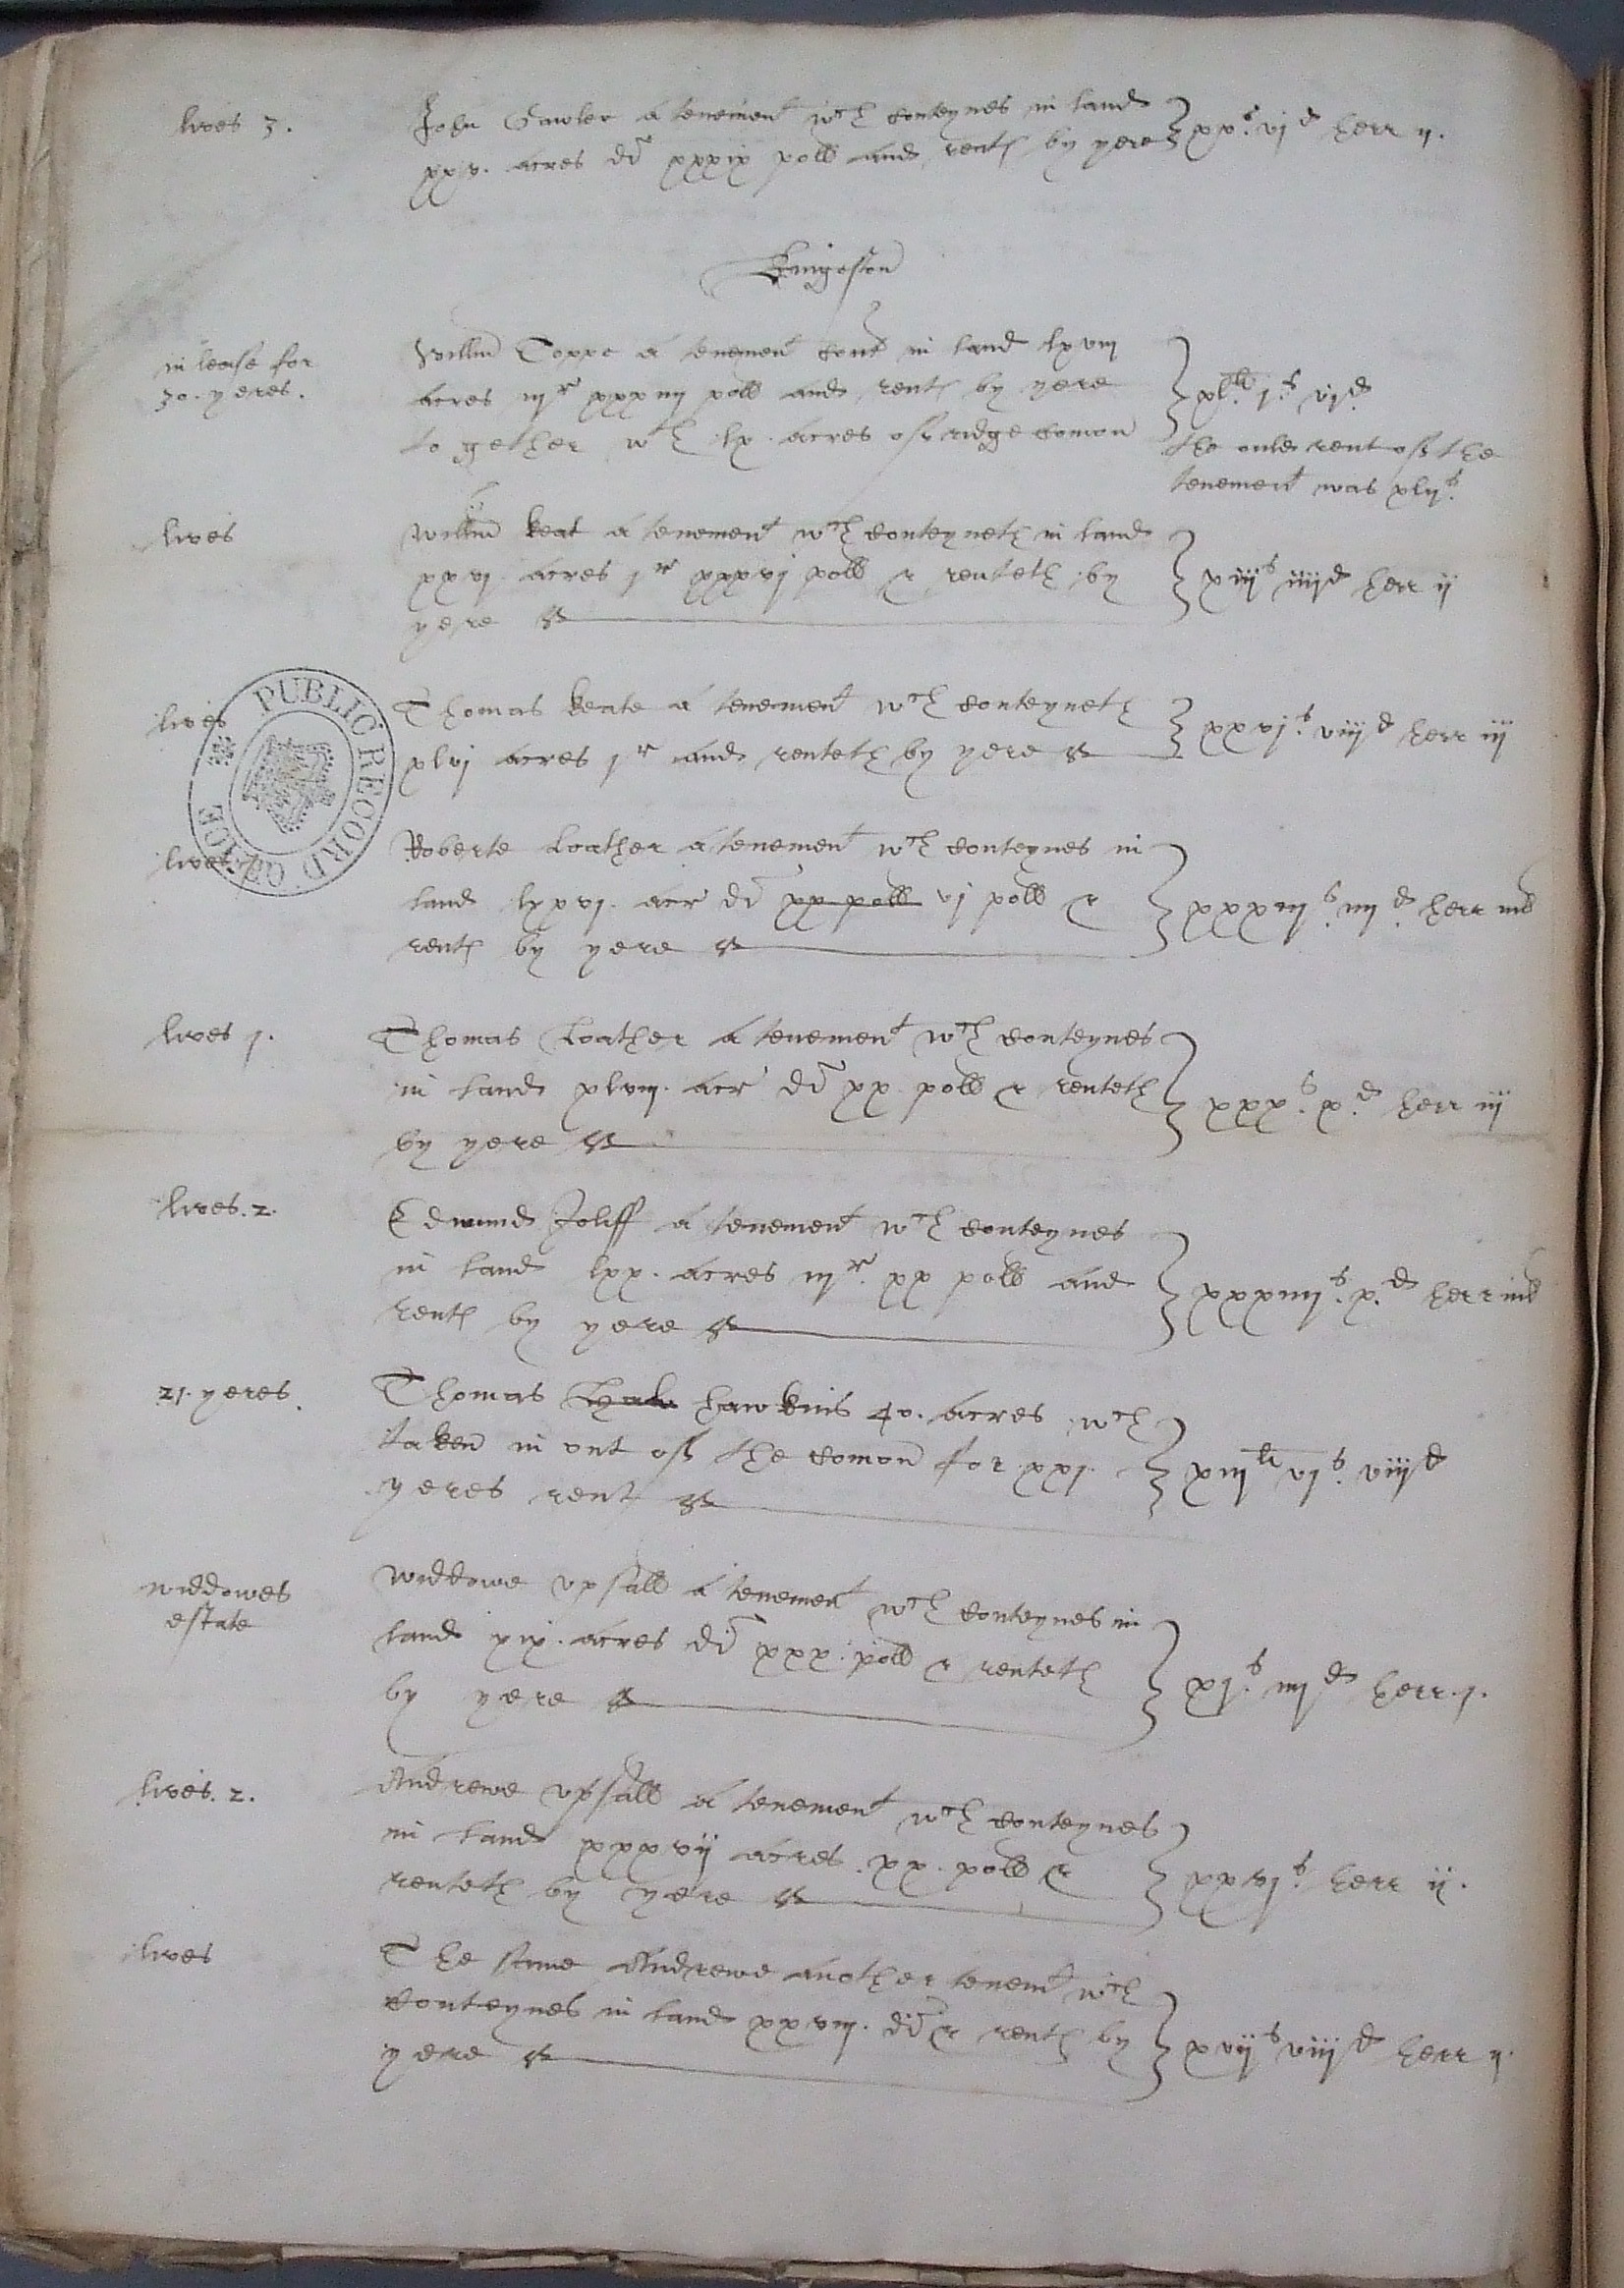 lives 3.
John Gawler a tenement wch conteynes in land
xxv. acres di xxxix poll and rents by yere xxs. vjd herr ij.
Kingeston
in lease for
30. yeres.
Willm Toppe a tenement cont in land lxviij
acres iijr xxxiiij poll and rents by yere
to gether wth lx acres off ridge comon
xlli. js. vjd.
the oulde rent off the
tenement was xlijs.
lives
Willm Keat a tenement wch conteyneth in land
xxvj acres jr xxxvj poll & renteth by
yere
xiijs iiijd herr ij
lives
Thomas Keate a tenement wch conteyneth
xlvj acres jr and renteth by yere
xxvjs. viijd herr iij
lives
Roberte Loather a tenement wch conteynes in
land lxxvj. acr di xx poll vj poll &
rents by yere
xxxiijs. iiijd. herr iiij
lives j.
Thomas Loather a tenement wch conteynes
in land xlviij. acr di xx poll & renteth
by yere
xxxs. xd. herr iij
lives. 2.
Edmund Joliff a tenement wch conteynes
in land lxx. acres iijr. xx poll and
rents by yere
xxxiiijs. x.d herr iiij
21. yeres.
Thomas hawkins 40. acres wch
taken in out off the comon for xxj.
yeres rent
xiijli vjs. viijd
widdowes
estate
Widdowe upsall a tenement wch conteynes in
land xix. acres di xxx poll & renteth
by yere
xjs. iiijd herr. j.
lives. 2.
Andrewe upsall a tenement wch conteynes
in land xxxvij acres. xx. poll &
renteth by yere
xxvjs. herr ij.
lives
The same Andrewe another tenemt wch
conteynes in land xxviij. di & rents by
yere
xvijs viijd herr ij.
PUBLIC RECORD OFFICE